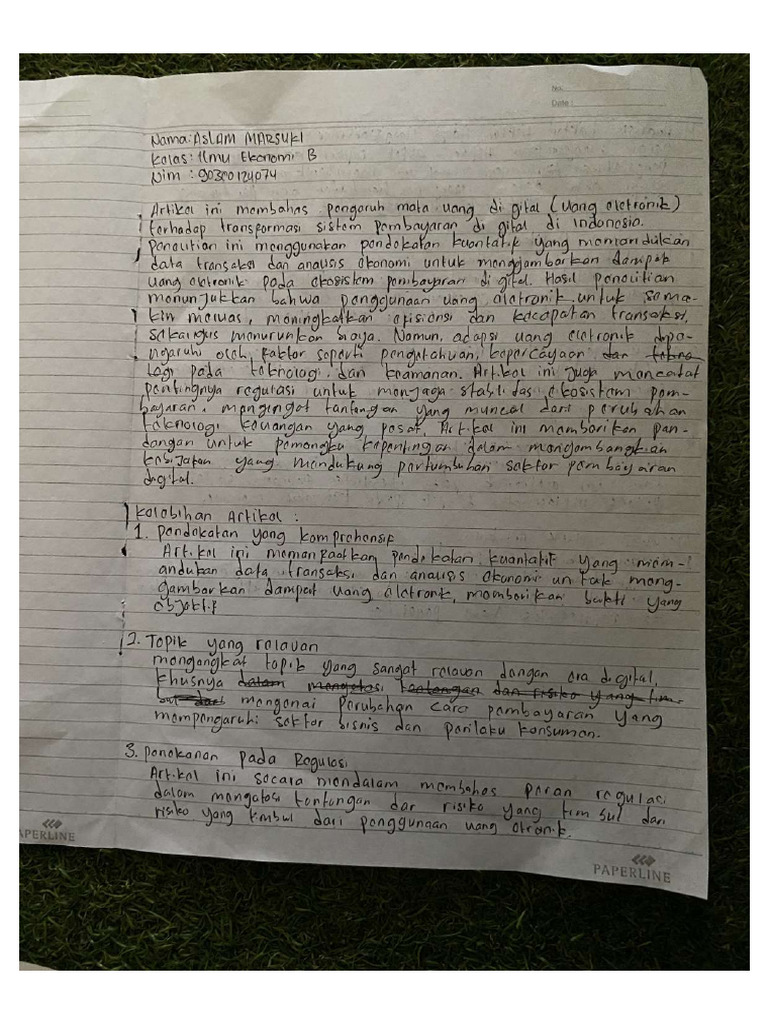 No.
Date:
Nama: ASLAM MARSUKI
Kelas: Ilmu Ekonomi B
Nim : 90300124074
Artikel ini membahas pengaruh mata uang digital (uang eletronik)
terhadap transformasi sistem pembayaran digital di Indonesia.
Penelitian ini menggunakan pendekatan kuantatik yang memandukan
data transaksi dan analisis ekonomi untuk menggambarkan dampak
uang elktronik pada ekosistem pembayaran digital. Hasil penelitian
menunjukkan bahwa penggunaan uang eletronik untuk sema-
kin meluas, meningkatkan efisiensi dan kecepatan transaksi,
sekaligus menurunkan biaya. Namun, adapsi uang eletronik dipe-
ngaruhi oleh faktor seperti pengetahuan, kepercayaan dan tekno
logi pada teknologi, dan keamanan. Artikel ini juga mencatat
pentingnya regulasi untuk menjaga stabilitas ekosistem pem-
bayaran, mengingat tantangan yang muncul dari perubahan
teknologi keuangan yang pesat. Artikel ini memberiken pan-
dangan untuk pemangku kepentingan dalam mengembangkan
kebijakan yang mendukung pertumbuhan sektor pembayaran
digital.
Kelebihan Artikel :
1. Pendekatan yang komprehensif
Artikel ini memanfaatkan pendekatan kuantatif yang mem-
andukan data transaksi dan analisis ekonomi untuk meng-
gambarkan dampat uang eletronk, memberikan bukti yang
objektif
2. Topik yang relevan
mengangkat topik yang sangat relevan dengan era digital,
khusnya dalam mengatasi tantangan dan risiko yang tim-
bul dari mengenai perubahan cara pembayaran yang
mempengaruhi sektor bisnis dan perilaku konsumen.
3. Penekanan pada Regulasi
Artikel ini secara mendalam membahas peran regulasi
dalam mengatasi tantangan dar risiko yang tim bul dari
risiko yang timbul dari penggunaan uang etronik.
PAPERLINE
PAPERLINE